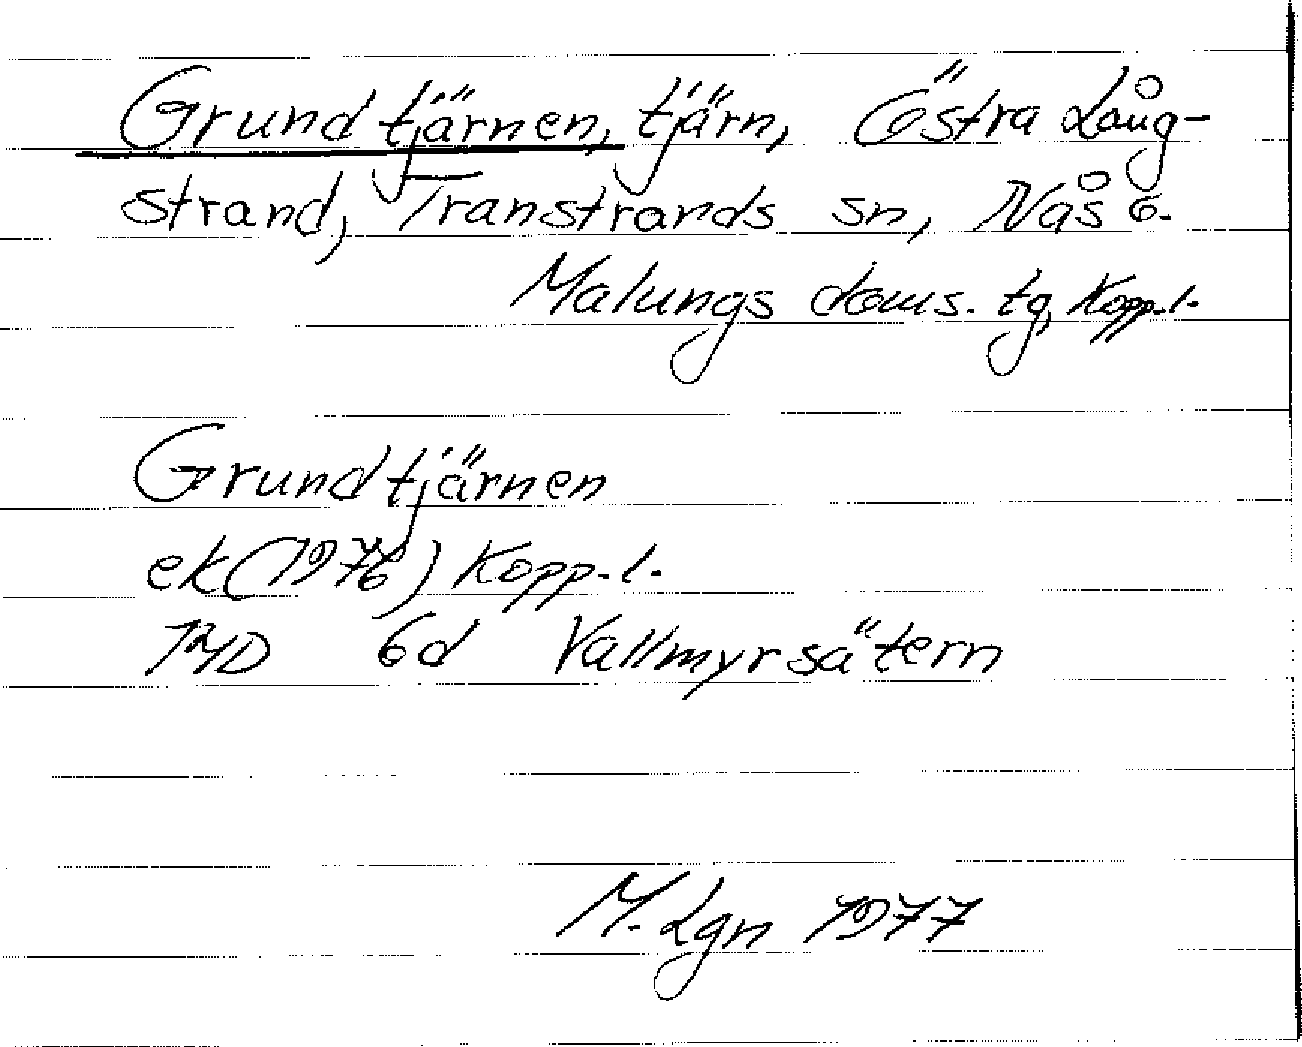 Grundtjärnen, tjärn, Östra Lång-
strand, Transtrands sn, Nås o.
Malungs doms. tg, Kopp.l.
Grundtjärnen
ek (1976) Kopp.l.
6d Vallmyrsätern
M. Lgn 1977